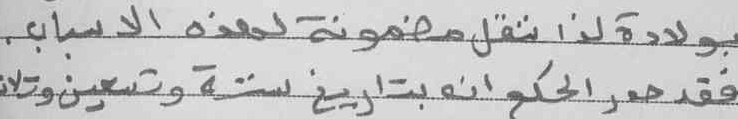 بولادة لذا تنقل مضمونة لهذه الاسباب.
فقد صدر الحكم انه بتاريخ ستة وتسعين وثلاث